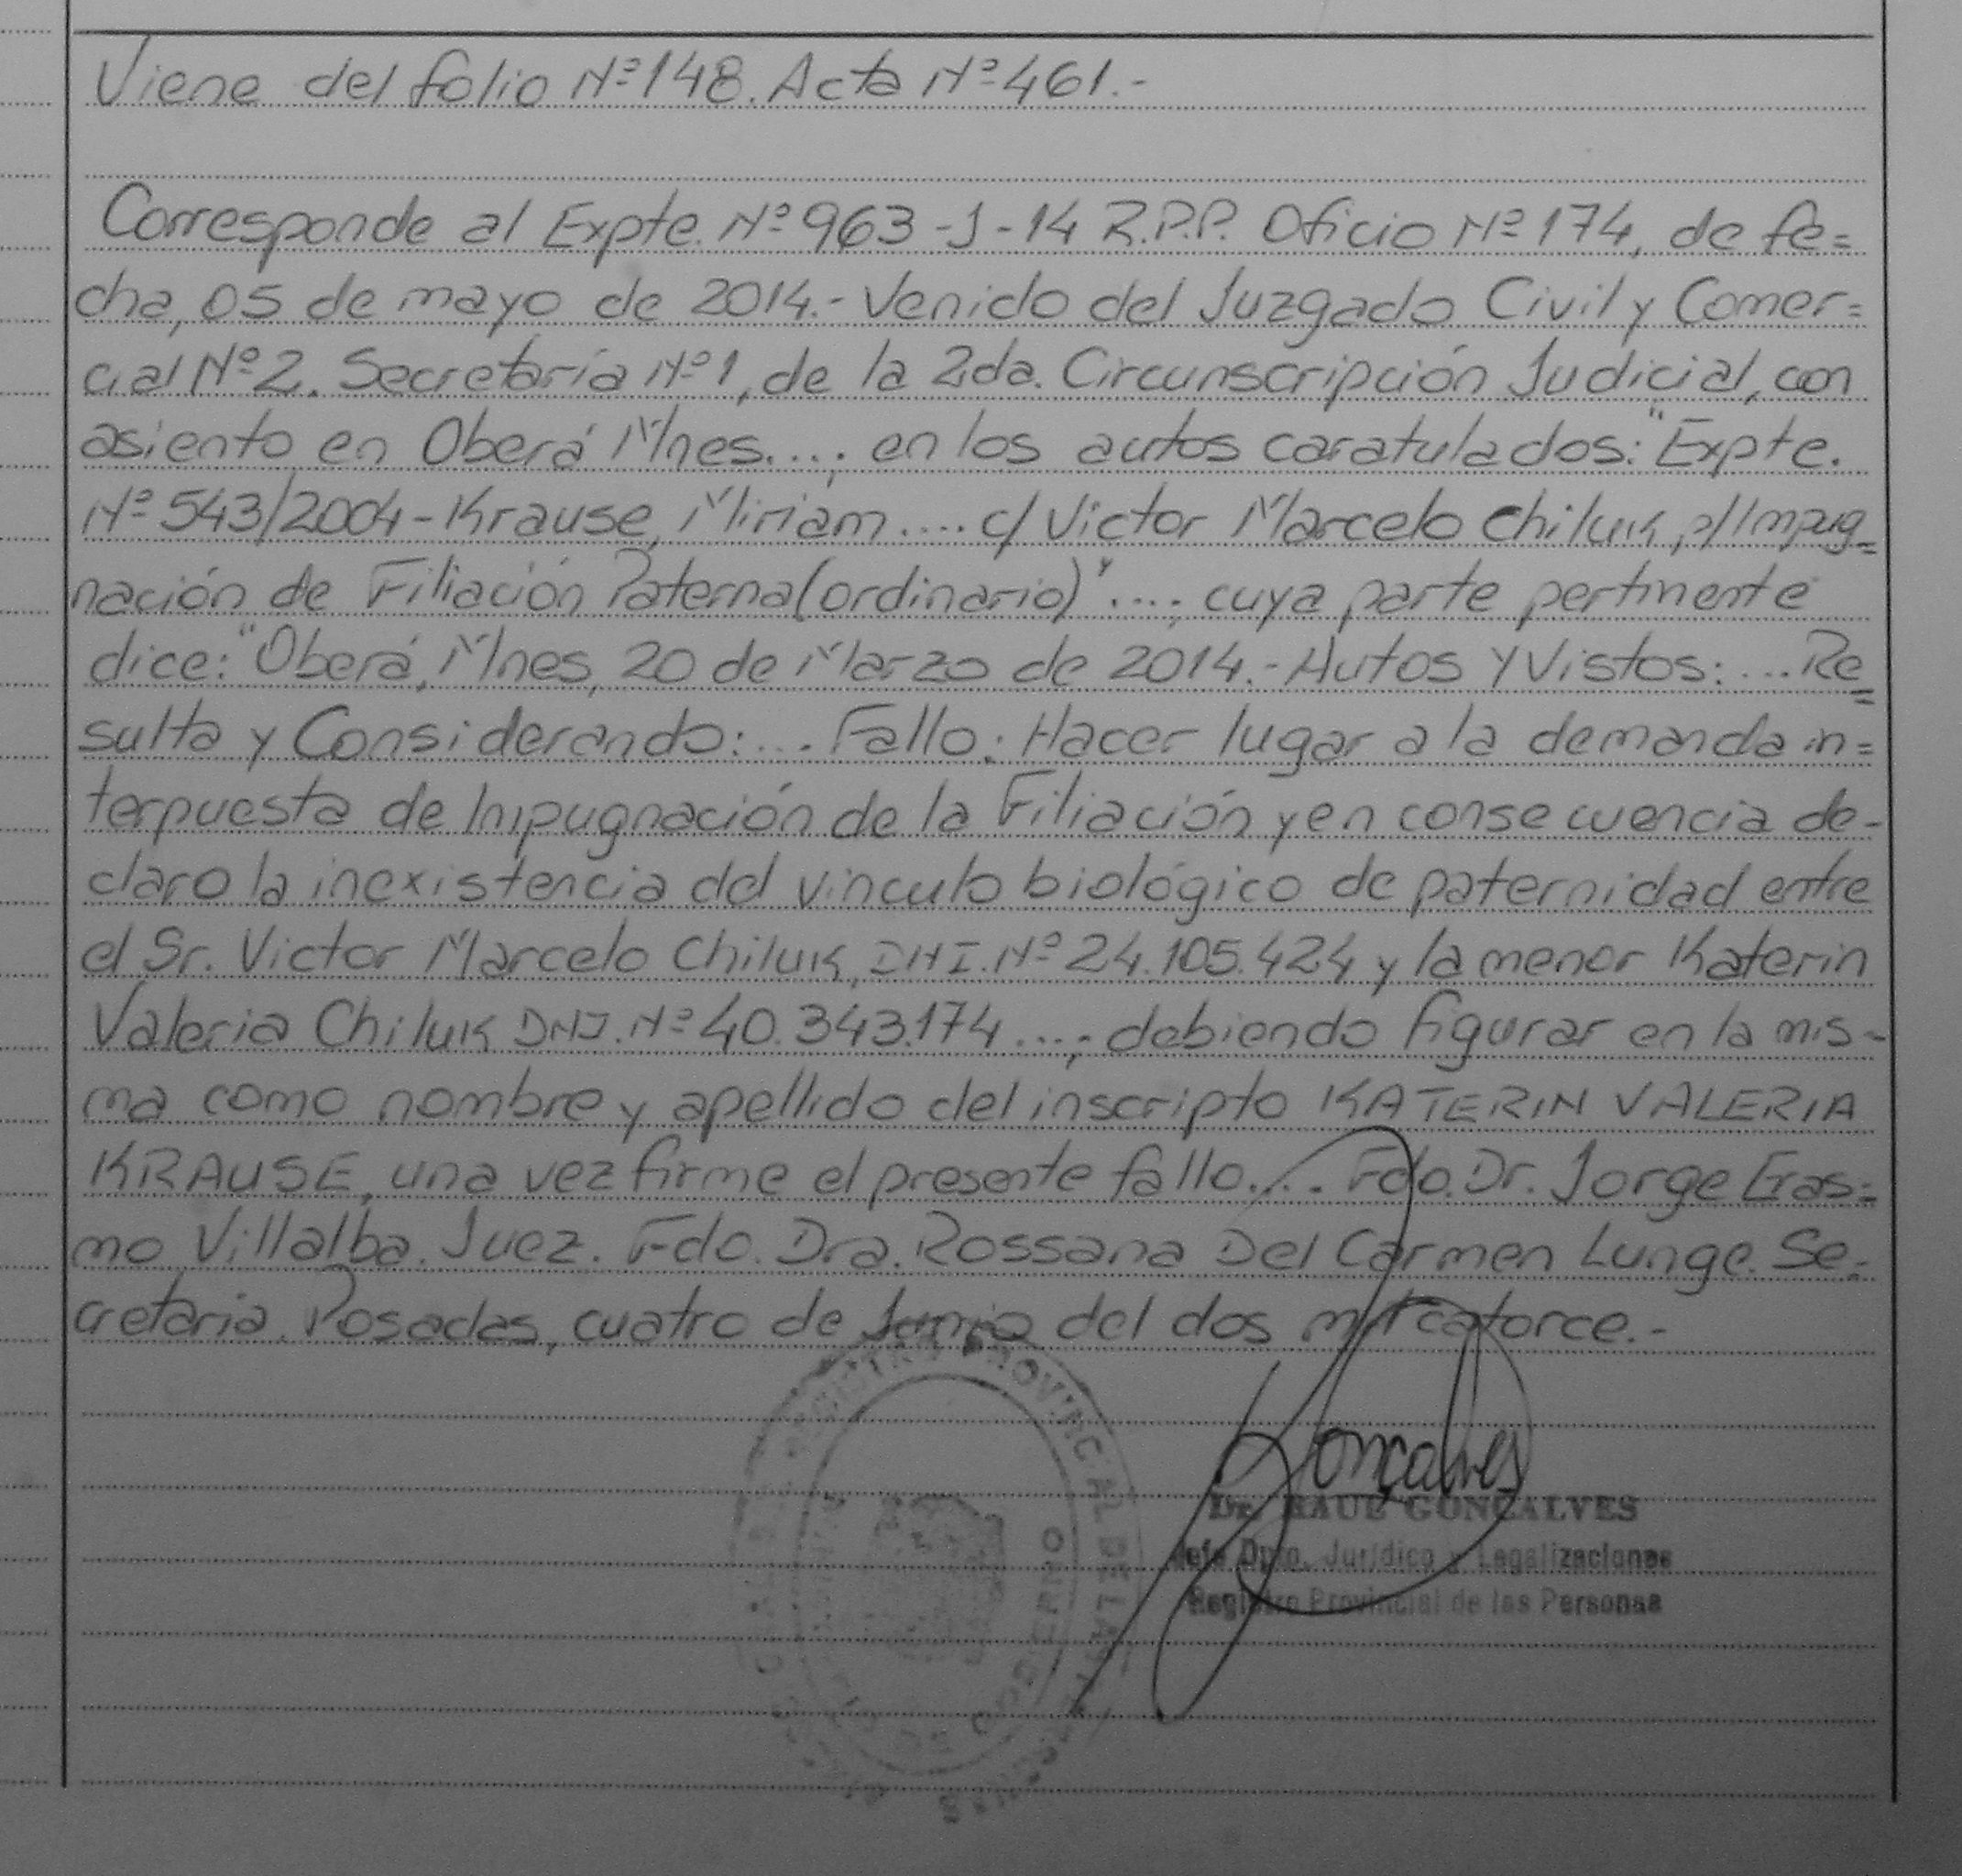 Viene del folio Nº148. Acta Nº461.-
Corresponde al Expte. Nº963-J-14 R.P.P. Oficio Nº174, de fe=
cha, 05 de mayo de 2014.- Venido del Juzgado Civil y Comer=
cial Nº2. Secretaría Nº1, de la 2da. Circunscripción Judicial, con
asiento en Oberá Mnes....; en los autos caratulados: "Expte.
Nº543/2004-Krause, Miriam.... c/ Victor Marcelo Chiluk, p/Impug=
nación de Filiación Paterna(ordinario)"....; cuya parte pertinente
dice: "Oberá, Mnes, 20 de Marzo de 2014.- Autos Y Vistos:...Re=
sulta y Considerando:... Fallo: Hacer lugar a la demanda in=
terpuesta de Impugnación de la Filiación y en consecuencia de-
claro la inexistencia del vinculo biológico de paternidad entre
el Sr. Victor Marcelo Chiluk, DNI.Nº24.105.424 y la menor Katerin
Valeria Chiluk DNI.Nº40.343.174...; debiendo figurar en la mis-
ma como nombre y apellido del inscripto KATERIN VALERIA
KRAUSE, una vez firme el presente fallo.... Fdo. Dr. Jorge Eras=
mo Villalba. Juez. Fdo. Dra. Rossana Del Carmen Lunge. Se-
cretaria. Posadas, cuatro de Junio del dos mil catorce.-
REGISTRO PROVINCIAL DE LAS
Gonçalves
Dr. RAUL GONÇALVES
Jefe Dpto. Jurídico y Legalizaciones
Registro Provincial de las Personas